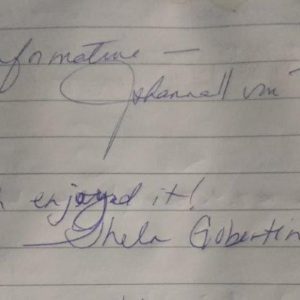 formative —
Johannall van
enjoyed it!
Shela Gobertin